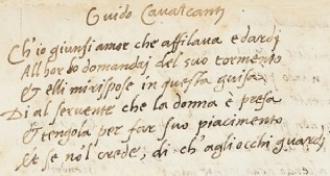 Guido Cavalcanti
Ch'io giunsi amor che affilava e dardi
Allhor lo domandai del suo tormento
& elli mi rispose in questa guisa
Di al servente che la donna è presa
& tengola per far suo piacimento
Et se no'l crede, di ch'agli occhi guardi